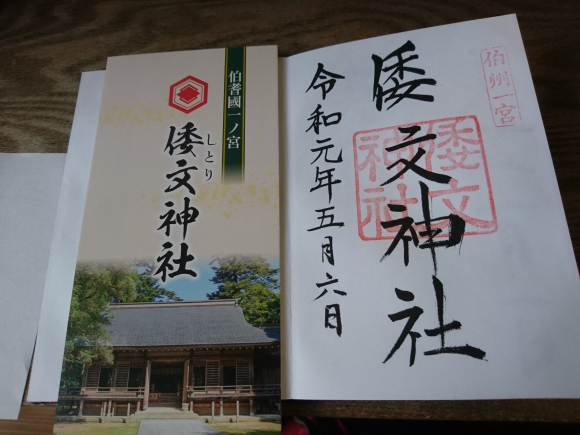 伯耆國一ノ宮
倭文神社
しとり
伯州一宮
倭文神社
倭文神社
令和元年五月六日